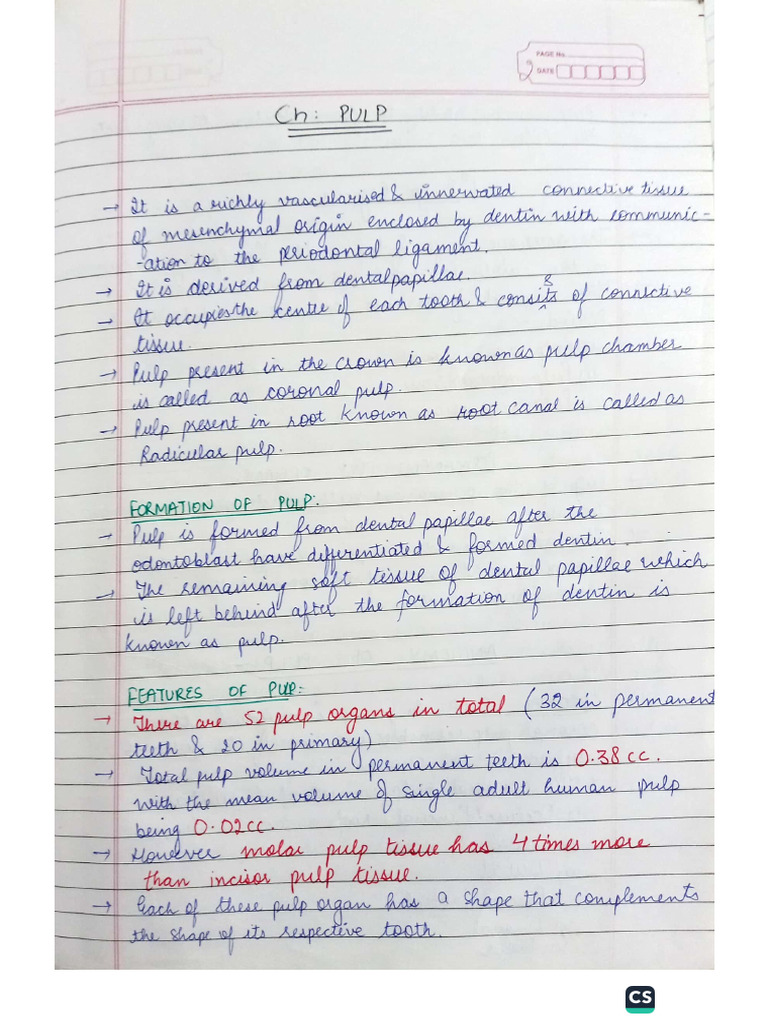 PAGE No.
DATE
Ch: PULP
→ It is a richly vascularised & innervated connective tissue
of mesenchymal origin enclosed by dentin with communic-
-ation to the periodontal ligament.
→ It is derived from dental papillae.
→ It occupies the centre of each tooth & consists of connective
tissue.
→ Pulp present in the crown is known as pulp chamber
is called as coronal pulp.
→ Pulp present in root known as root canal is called as
Radicular pulp.
FORMATION OF PULP:
→ Pulp is formed from dental papillae after the
odontoblast have differentiated & formed dentin.
→ The remaining soft tissue of dental papillae which
is left behind after the formation of dentin is
known as pulp.
FEATURES OF PULP:
→ There are 52 pulp organs in total (32 in permanent
teeth & 20 in primary)
→ Total pulp volume in permanent teeth is 0.38cc.
with the mean volume of single adult human pulp
being 0.02cc.
→ However molar pulp tissue has 4 times more
than incisor pulp tissue.
→ Each of these pulp organ has a shape that complements
the shape of its respective tooth.
CS